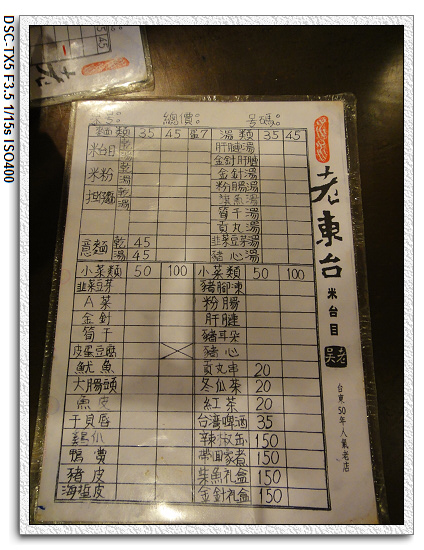 DSC-TX5 F3.5 1/15s ISO400
總價: 号碼:
麵類 35 45 蛋7 湯類 35 45
米台目 乾 湯 肝腱湯
金針肝腱
米粉 乾 湯 金針湯
粉腸湯
乾 湯 魚湯
筍干湯
貢丸湯
意麵 乾 45 韭菜豆芽湯
湯 45 豬心湯
小菜類 50 100 小菜類 50 100
韭菜豆芽 豬腳凍
A菜 粉腸
金針 肝腱
筍干 豬耳朵
皮蛋豆腐 豬心
魷魚 貢丸串 20
大腸頭 冬瓜茶 20
魚皮 紅茶 20
干貝唇 台灣啤酒 35
雞仈 辣椒缶 150
鴨賞 帶回家煮 150
豬皮 柴魚礼盒 150
海蜇皮 金針礼盒 150
老東台
米台目
老吳
台東50年人氣老店